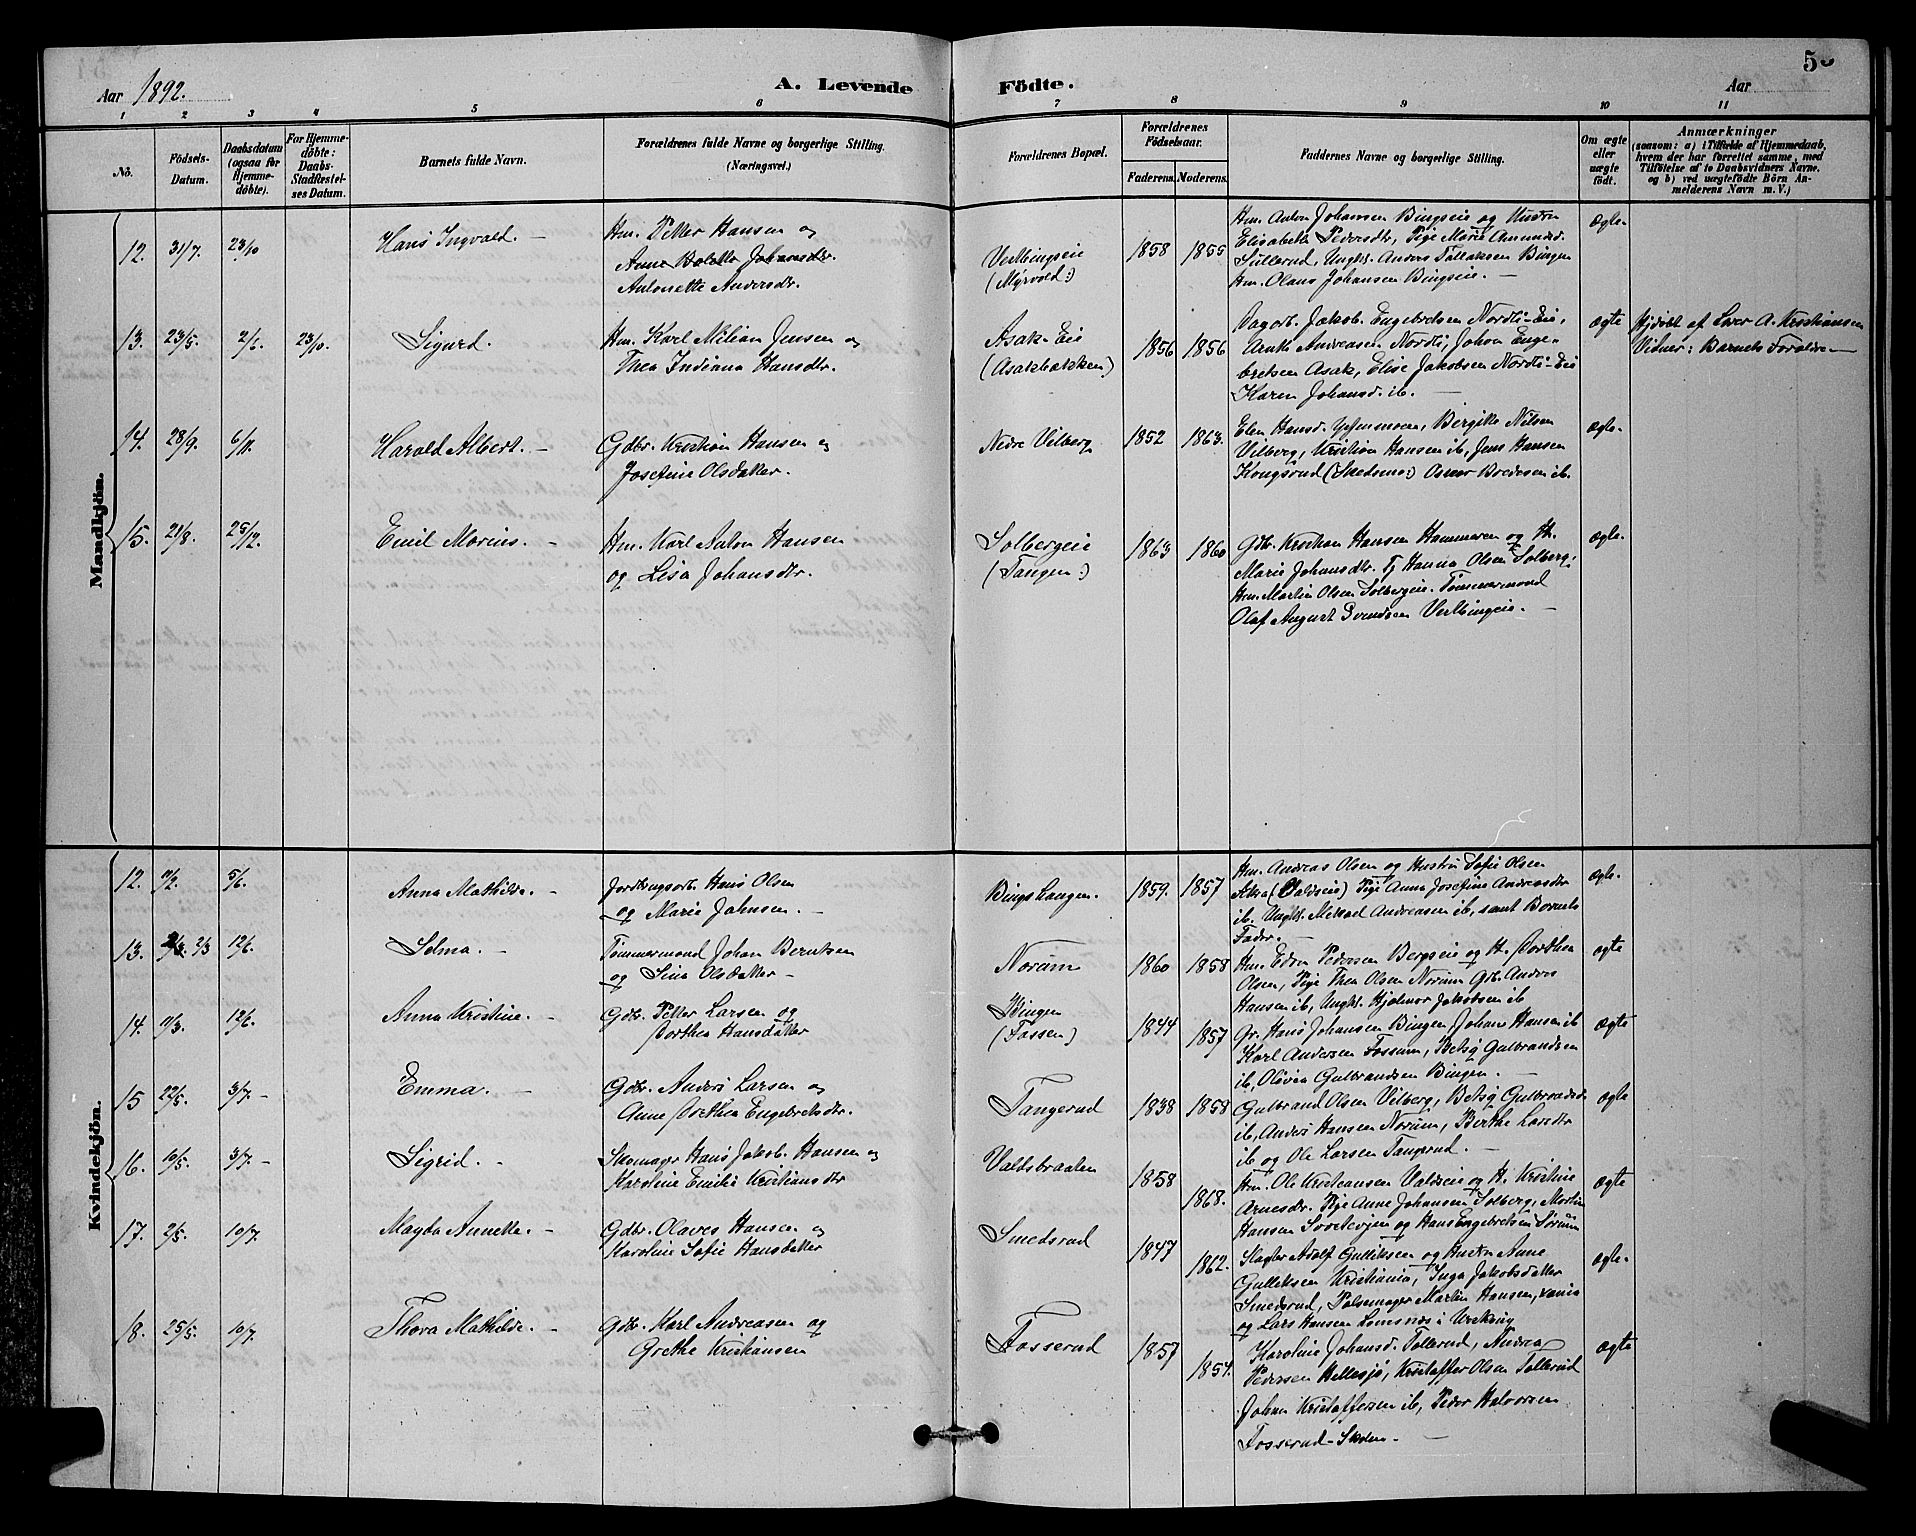 Aar 1892.
A. Levende Födte.
Aar
5
1 2 3 4 5 6 7 8 9 10 11
No.
Födsels-Datum.
Daabsdatum (ogsaa for Hjemme-döbte).
For Hjemme-döbte: Daabs-Stadfæstel-ses Datum.
Barnets fulde Navn.
Forældrenes fulde Navne og borgerlige Stilling. (Næringsvei.)
Forældrenes Bopæl.
Forældrenes Födselsaar.
Faderens. Moderens.
Faddernes Navne og borgerlige Stilling.
Om ægte eller uægte födt.
Anmærkninger
(saasom: a) i Tilfælde af Hjemmedaab, hvem der har forrettet samme, med Tilföielse af to Daabsvidners Navne. og b) ved uægtefödte Börn An-melderens Navn m. V.)
Mandkjön.
12. 31/7. 23/10 Hans Ingvald. —
Hm. Petter Hansen og
Anne Bolette Johansdtr.
Antonette Andersdtr.
Vestbingseie
(Myrvold:)
1858 1855
Hm. Anton Johansen Bingseie og Hustru
Elisabeth Pedersdtr, Pige Marie Amundsd.
Sullerud, Ungk. Anders Tollefsen Bingen
Hm. Olaus Johansen Bingseie. —
Ægte.
13. 23/5. 2/6. 23/10. Sigurd.
Hm. Karl Milian Jensen og
Thea Indiana Hansdtr.
Asak-Eie
(Asakbakken)
1856 1856
Dagarb. Jakob Engebretsen Nordli-Eie,
Arnth Andreasen Nordli, Johan Enge-
bretsen Asak, Elise Jakobsen Nordli-Eie
Karen Johansd. ib. —
Ægte
Hjdöbt af Lærer A. Kristiansen
Vidner: Barnets Forældre —
14. 28/9. 6/11. Harald Albert. —
Gdbr. Kristian Hansen og
Josefine Olsdatter.
Nedre Vilberg
1852 1863.
Elen Hansd. Bergitte Nilsen
Vilberg, Kristian Hansen ib, Jens Hansen
Kongsrud (Skedsmo:) Bredesen ib.
Ægte.
15. 21/8. 25/12. Emil Marius. —
Hm. Karl Anton Hansen
og Lisa Johansdtr.
Solbergeie
(Tangen:)
1863 1860
Gdbr. Kristian Hansen Hammeren og H.
Marie Johansdtr. Pj. Hanna Olsen Solberg,
Hm. Martin Olsen Solbergeie. Tømmermand
Olaf August Svendsen Vestbingeie. —
Ægte.
Kvindekjön.
12. 11/2. 5/6. Anna Mathilde. —
Jordbrugsarb. Hans Olsen
og Marie Johnsen. —
Bingshaugen.
1859. 1857
Hm. Andreas Olsen og Hustru Sofie Olsen
Asak (Valdseie) Pige Anna Josefine Andreasdtr
ib. Ungk. Mikael Andreasen ib, samt Barnets
Fader. —
Ægte.
13. 2/3 12/6. Selma. —
Tømmermand Johan Berntsen
og Lina Olsdatter —
Norum
1860 1858
Hm. Edvin Pedersen Bergseie og H. Dorthea
Olsen, Pige Thea Olsen Norum Grb. Anders
Hansen ib, Ungk. Hjalmar Jakobsen ib
Ægte
14. 11/3. 12/6. Anna Kristine. —
Gdbr. Petter Larsen og
Dorthea Hansdatter
Bingen
(Fossen)
1844 1857
Gr. Hans Johansen Bingen, Johan Hansen ib
Karl Andersen Fossum, Betsy Gulbrandsen
ib, Olovea Gulbrandsen Bingen. —
Ægte
15 22/5. 3/7. — Emma. —
Gdbr. Anders Larsen og
Anne Dorthea Engebretsdtr.
Tangerud
1838 1858
Gulbrand Olsen Vilberg, Betsy Gulbrandsd.
ib, Anders Hansen Norum, Berthe Larsdtr
ib og Ole Larsen Tangerud. —
Ægte
16. 10/5. 3/7. — Sigrid. —
Skomager Hans Jakob Hansen og
Karoline Emilie Kristiansdtr
Valdsbraaten
1858 1868.
Hm. Ole Kristiansen Valdseie og H. Kristine
Arnesdtr. Pige Anne Johansen Solberg, Martin
Hansen og Hans Engebretsen Sørum
Ægte
17. 2/5. 10/7. Magda Annette. —
Gdbr. Olaves Hansen og
Karoline Sofie Hansdatter
Smedsrud
1847 1862.
Slagter Adolf Gulliksen og Hustru Anne
Gulliksen Kristiania, Inga Jakobsdatter
Smedsrud, Pølsemager Martin Hansen, Xania
og Lars Hansen Lomsnæs i Urskoug
Ægte.
18. 25/5. 10/7. Thora Mathilde. —
Gdbr. Karl Andreasen og
Grethe Kristiansen
Fosserud
1857 1854.
Karoline Johansd. Tollerud, Andrea
Pedersen Hellesjø, Kristoffer Olsen Tollerud
Johan Kristoffersen ib, Peder Halvorsen
Fosserud-Skolen. —
Ægte